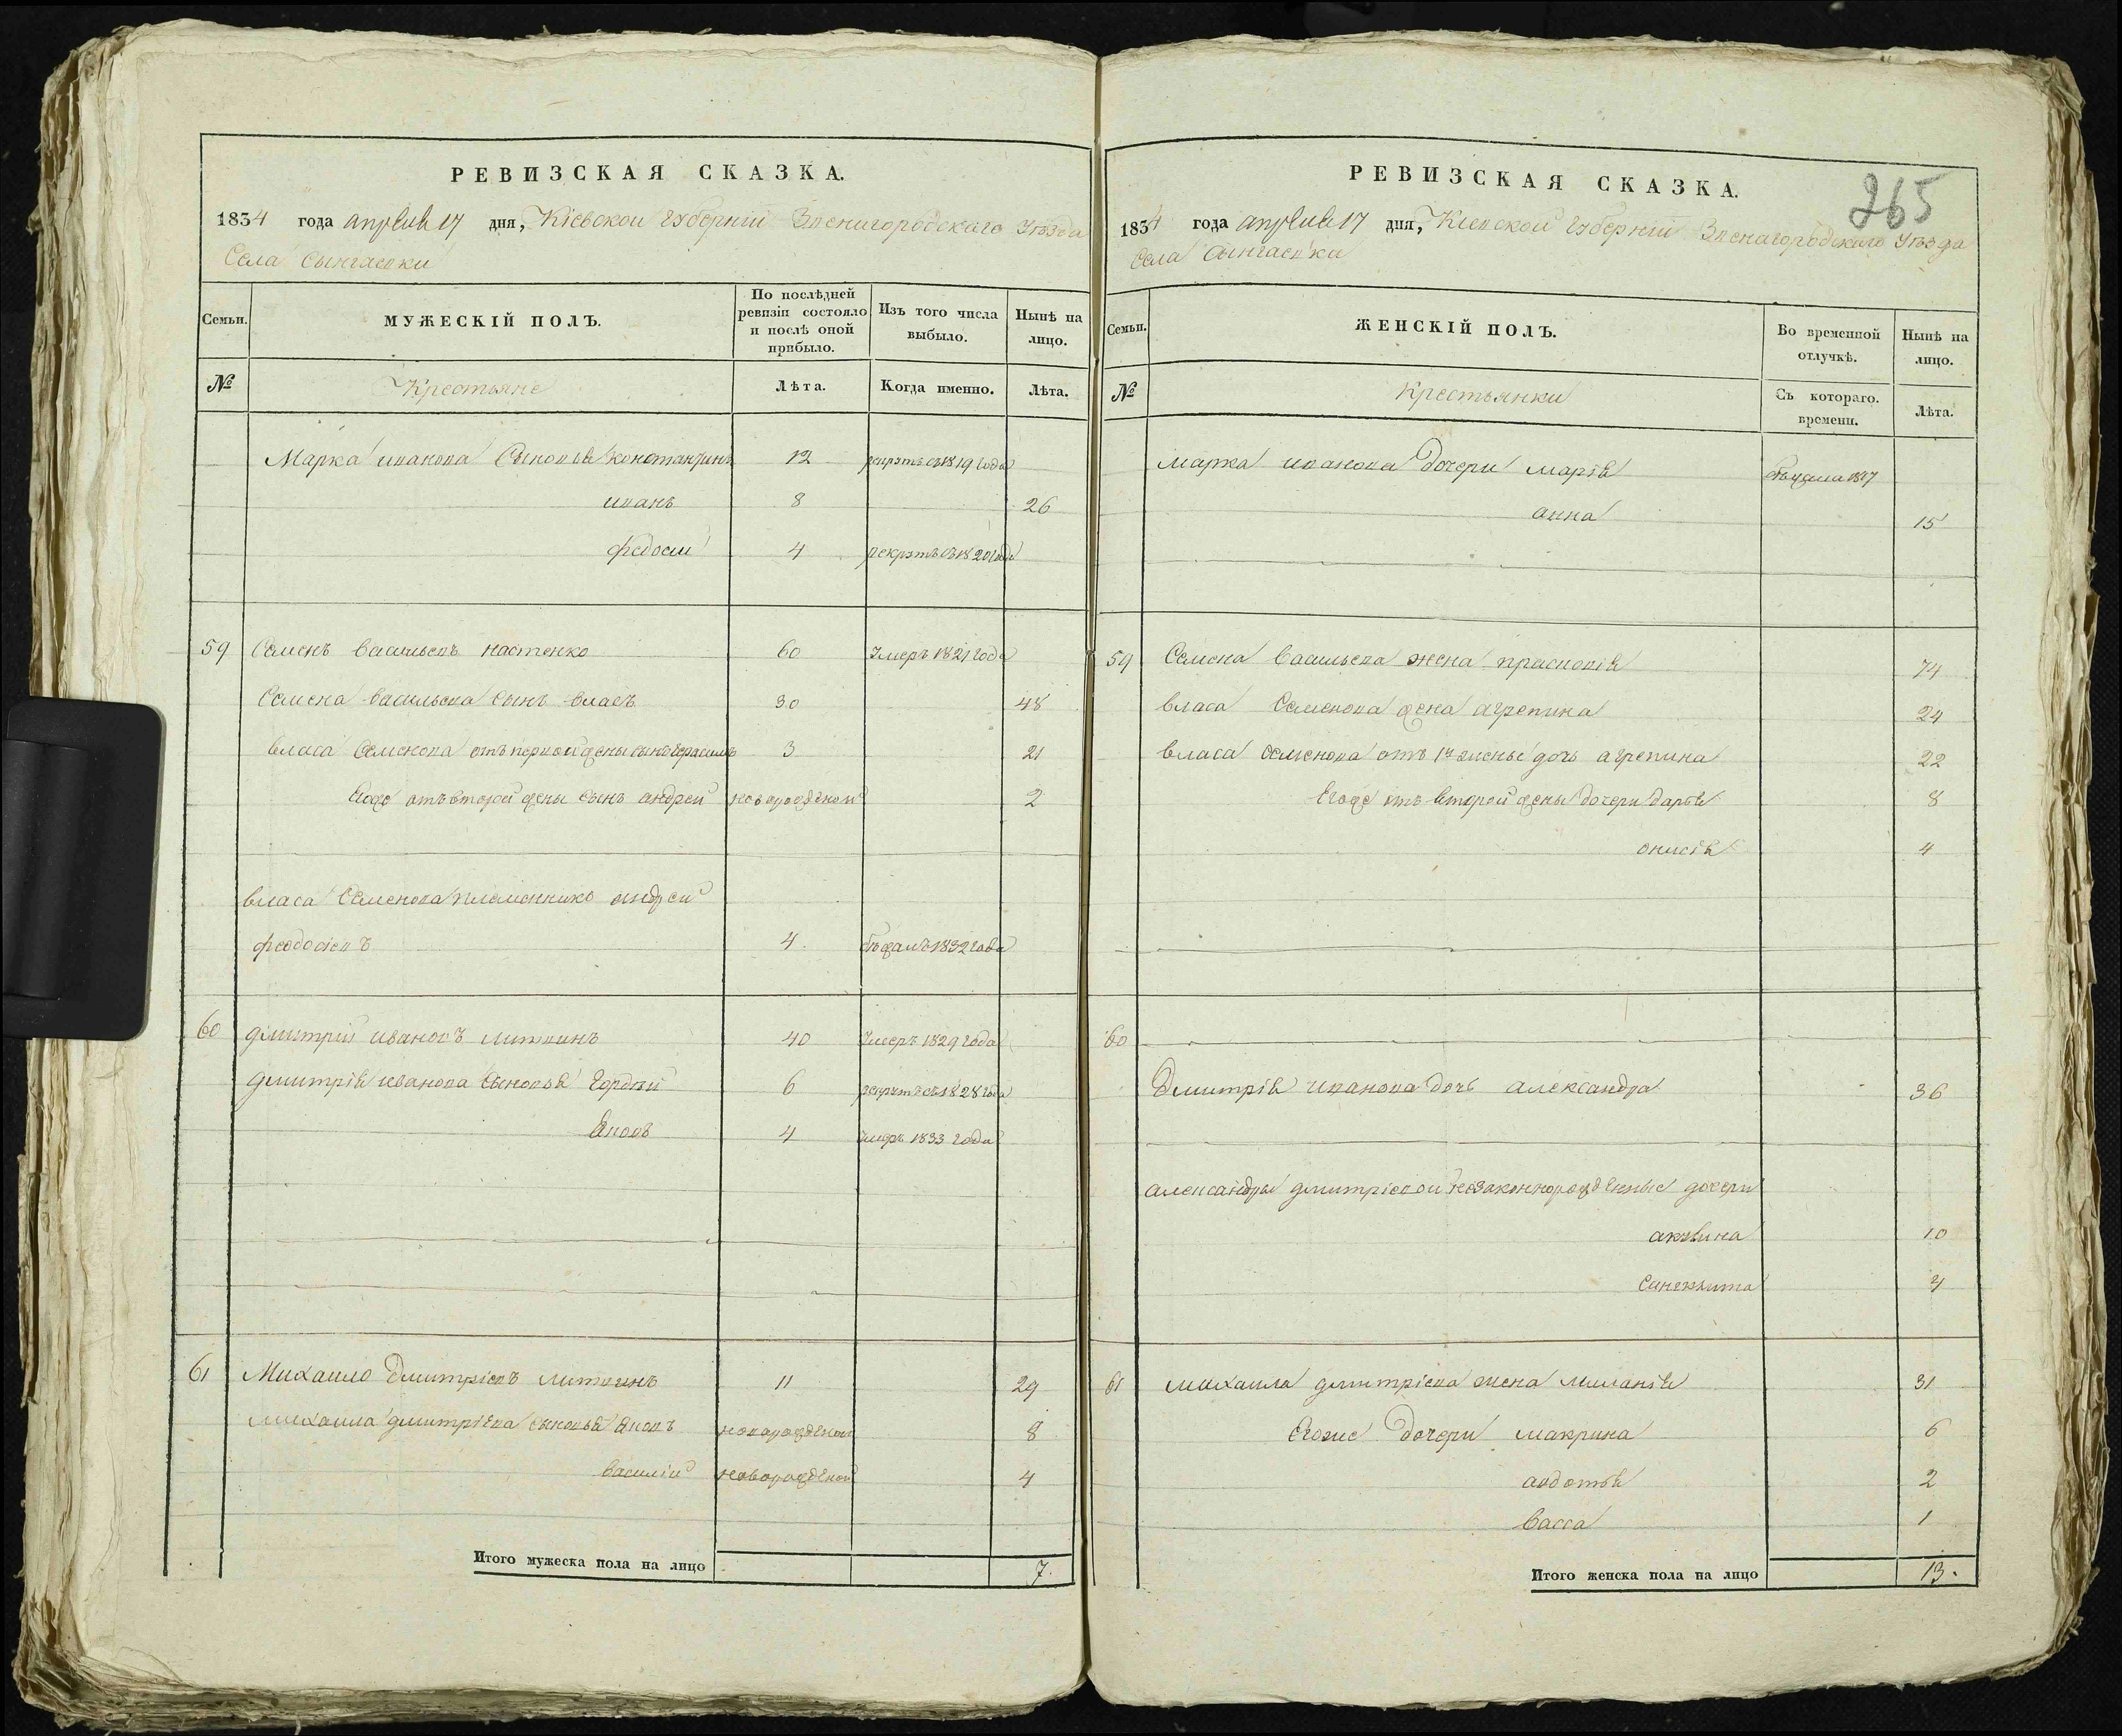 РЕВИЗСКАЯ СКАЗКА.
1834 года апреля 17 дня, Кіевской губерніи Звенигородского Уезда
Села
МУЖЕСКІЙ ПОЛЪ.
Семьи.
По послѣдней ревизіи состояло и послѣ оной прибыло.
Изъ того числа выбыло.
Нынѣ на лицо.
№ Крестьяне Лѣта. Когда именно. Лѣта.
Марка иванова Сыновья константинъ 12 рекрутъ съ 1819 года
иванъ 8 26
федосій 4 рекрутъ съ 1820 года
59 Семенъ васильевъ 60 Умеръ 1821 года
Семена васильева сынъ власъ 30 48
власа Семенова отъ первой жены сынъ герасимъ 3 21
Егоже отъ второй жены сынъ андрей новорожденой 2
власа Семенова племенникъ андрей
феодосіевъ 4 бежалъ 1832 года
60 дмитрий ивановъ 40 Умеръ 1829 года
дмитрія иванова сыновья гордій 6 рекрутъ съ 1828 года
4 умеръ 1833 года
61 Михаило Дмитріевъ 11 29
михаила дмитріева сыновья новорожденой 8
василій новорожденой 4
Итого мужеска пола на лицо 7.
265
РЕВИЗСКАЯ СКАЗКА.
1834 года апреля 17 дня, Кіевской губерніи Звенигородского Уезда
Села
Семьи.
ЖЕНСКІЙ ПОЛЪ.
Во временной отлучкѣ.
Нынѣ на лицо.
№ Крестьянки Съ котораго. времени. Лѣта.
марка иванова дочери марія бежала 1817
анна 15
59 Семена васильева жена прасковія 74
власа Семенова жена агрепина 24
власа Семенова отъ 1й жены дочь агрепина 22
Егоже отъ второй жены дочери дарья 8
онисія 4
60
Дмитрія иванова дочь александра 36
александры дмитріевой незаконнорожденные дочери
акулина 10
4
61 михаила дмитріева жена миланія 31
Егоже дочери макрина 6
авдотья 2
васса 1
Итого женска пола на лицо 13.